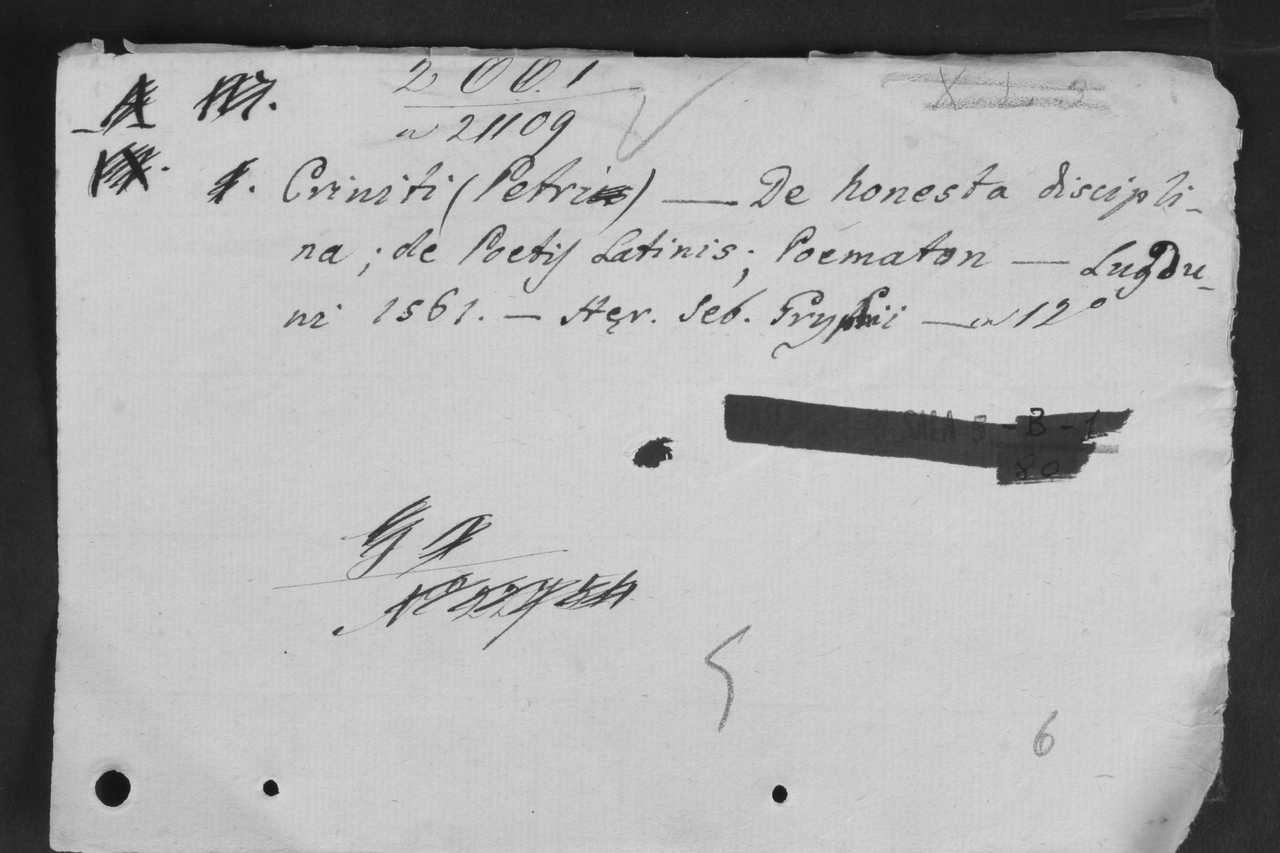 2 00.1
n 21109
Criniti (Petri) — De honesta discipli-
na ; de Poetis Latinis ; Poematon — Lugdu-
ni 1561. — Hęr. Seb. Gryphii — in 12º
SALA B - B - 1
80
6